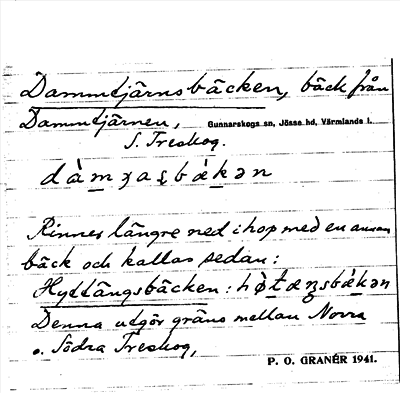 Dammtjärnsbäcken, bäck från
Dammtjärnen, Gunnarskogs sn, Jösse hd, Värmlands l.
S. Treskog.
dàmɟaʂbækən
Rinner längre ned ihop med en annan
bäck och kallas sedan:
Hyttängsbäcken: hø̀tæŋsbækən
Denna utgör gräns mellan Norra
o. Södra Treskog,
P. O. GRANÉR 1941.